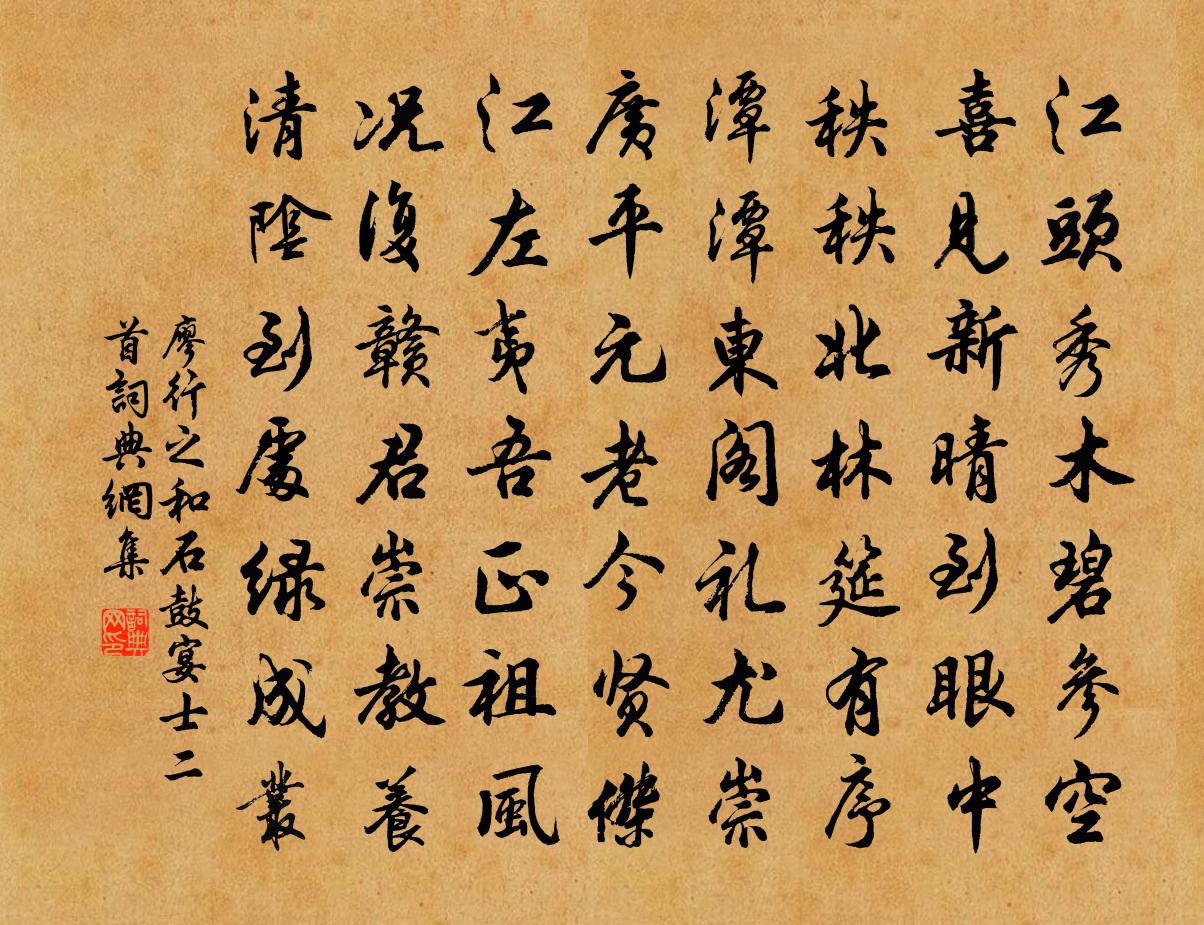 江頭秀木碧參空
喜見新晴到眼中
秩秩北林筵有序
潭潭東阁礼尤崇
廣平元老今贤傑
江左夷吾正祖風
况復贛君崇教養
清陰到處緑成叢
廖行之和石鼓宴士二
首詞典網集
詞典网印